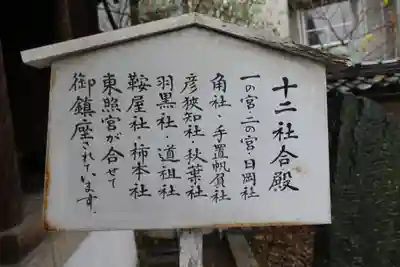 十二社合殿
一の宮・二の宮・日岡社
角社・手置帆負社
彦狭知社・秋葉社
羽黒社・道祖社
鞍屋社・柿本社
東照宮が合せて
御鎮座されています.